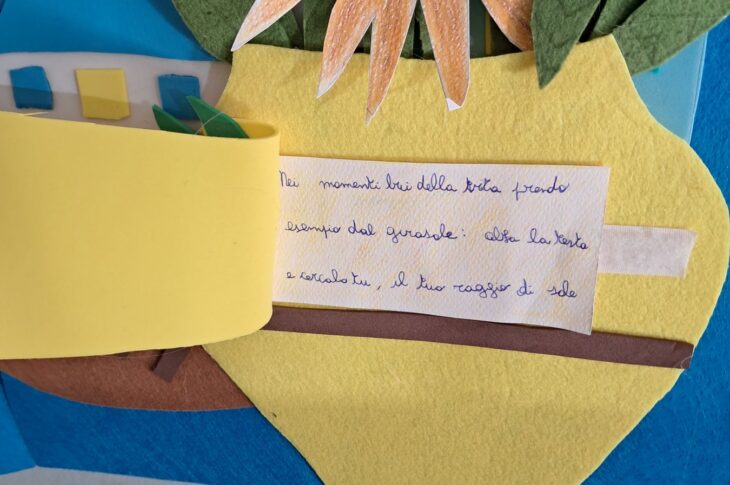 Nei momenti bui della vita prendo
esempio dal girasole: alza la testa
e cercalo tu, il tuo raggio di sole